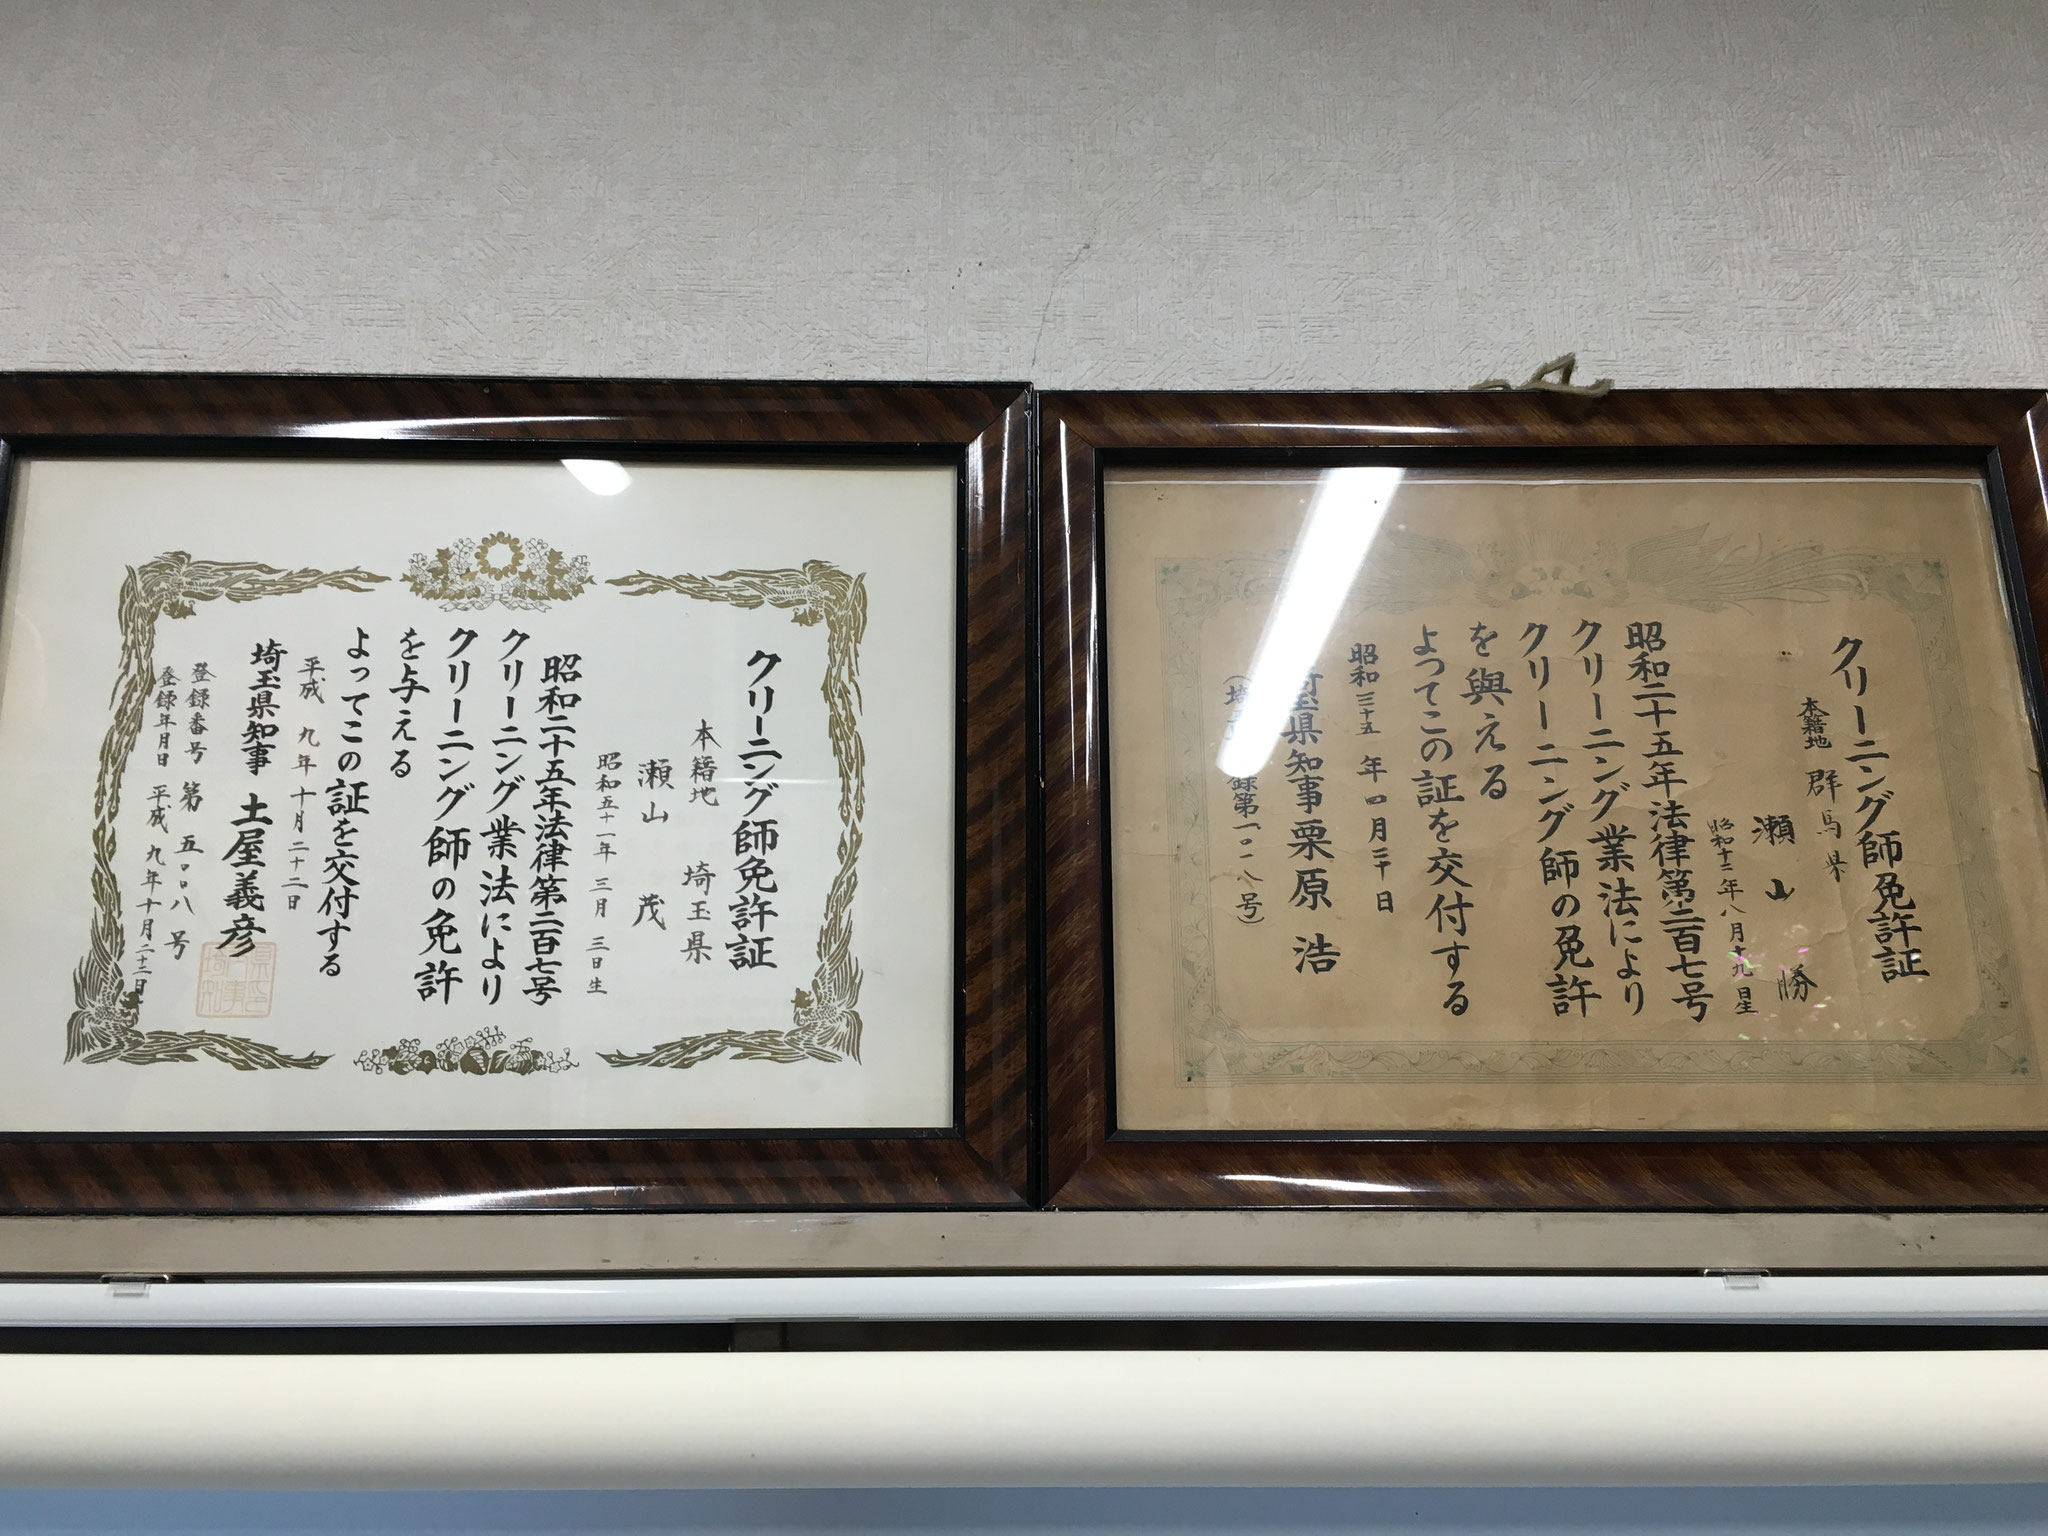 クリーニング師免許証
本籍地 埼玉県
瀬山 茂
昭和五十一年 三月 三日生
昭和二十五年法律第二百七号
クリーニング業法により
クリーニング師の免許
を与える
よってこの証を交付する
平成 九年十月二十二日
埼玉県知事 土屋義彦
登録番号 第 五〇〇八 号
登録年月日 平成 九年十月二十二日
クリーニング師免許証
本籍地 群馬県
瀬山 勝
昭和十三年八月十九日生
昭和二十五年法律第二百七号
クリーニング業法により
クリーニング師の免許
を與える
よつてこの証を交付する
昭和三十五 年 四 月 三十 日
埼玉県知事栗原 浩
録第一〇一八号)